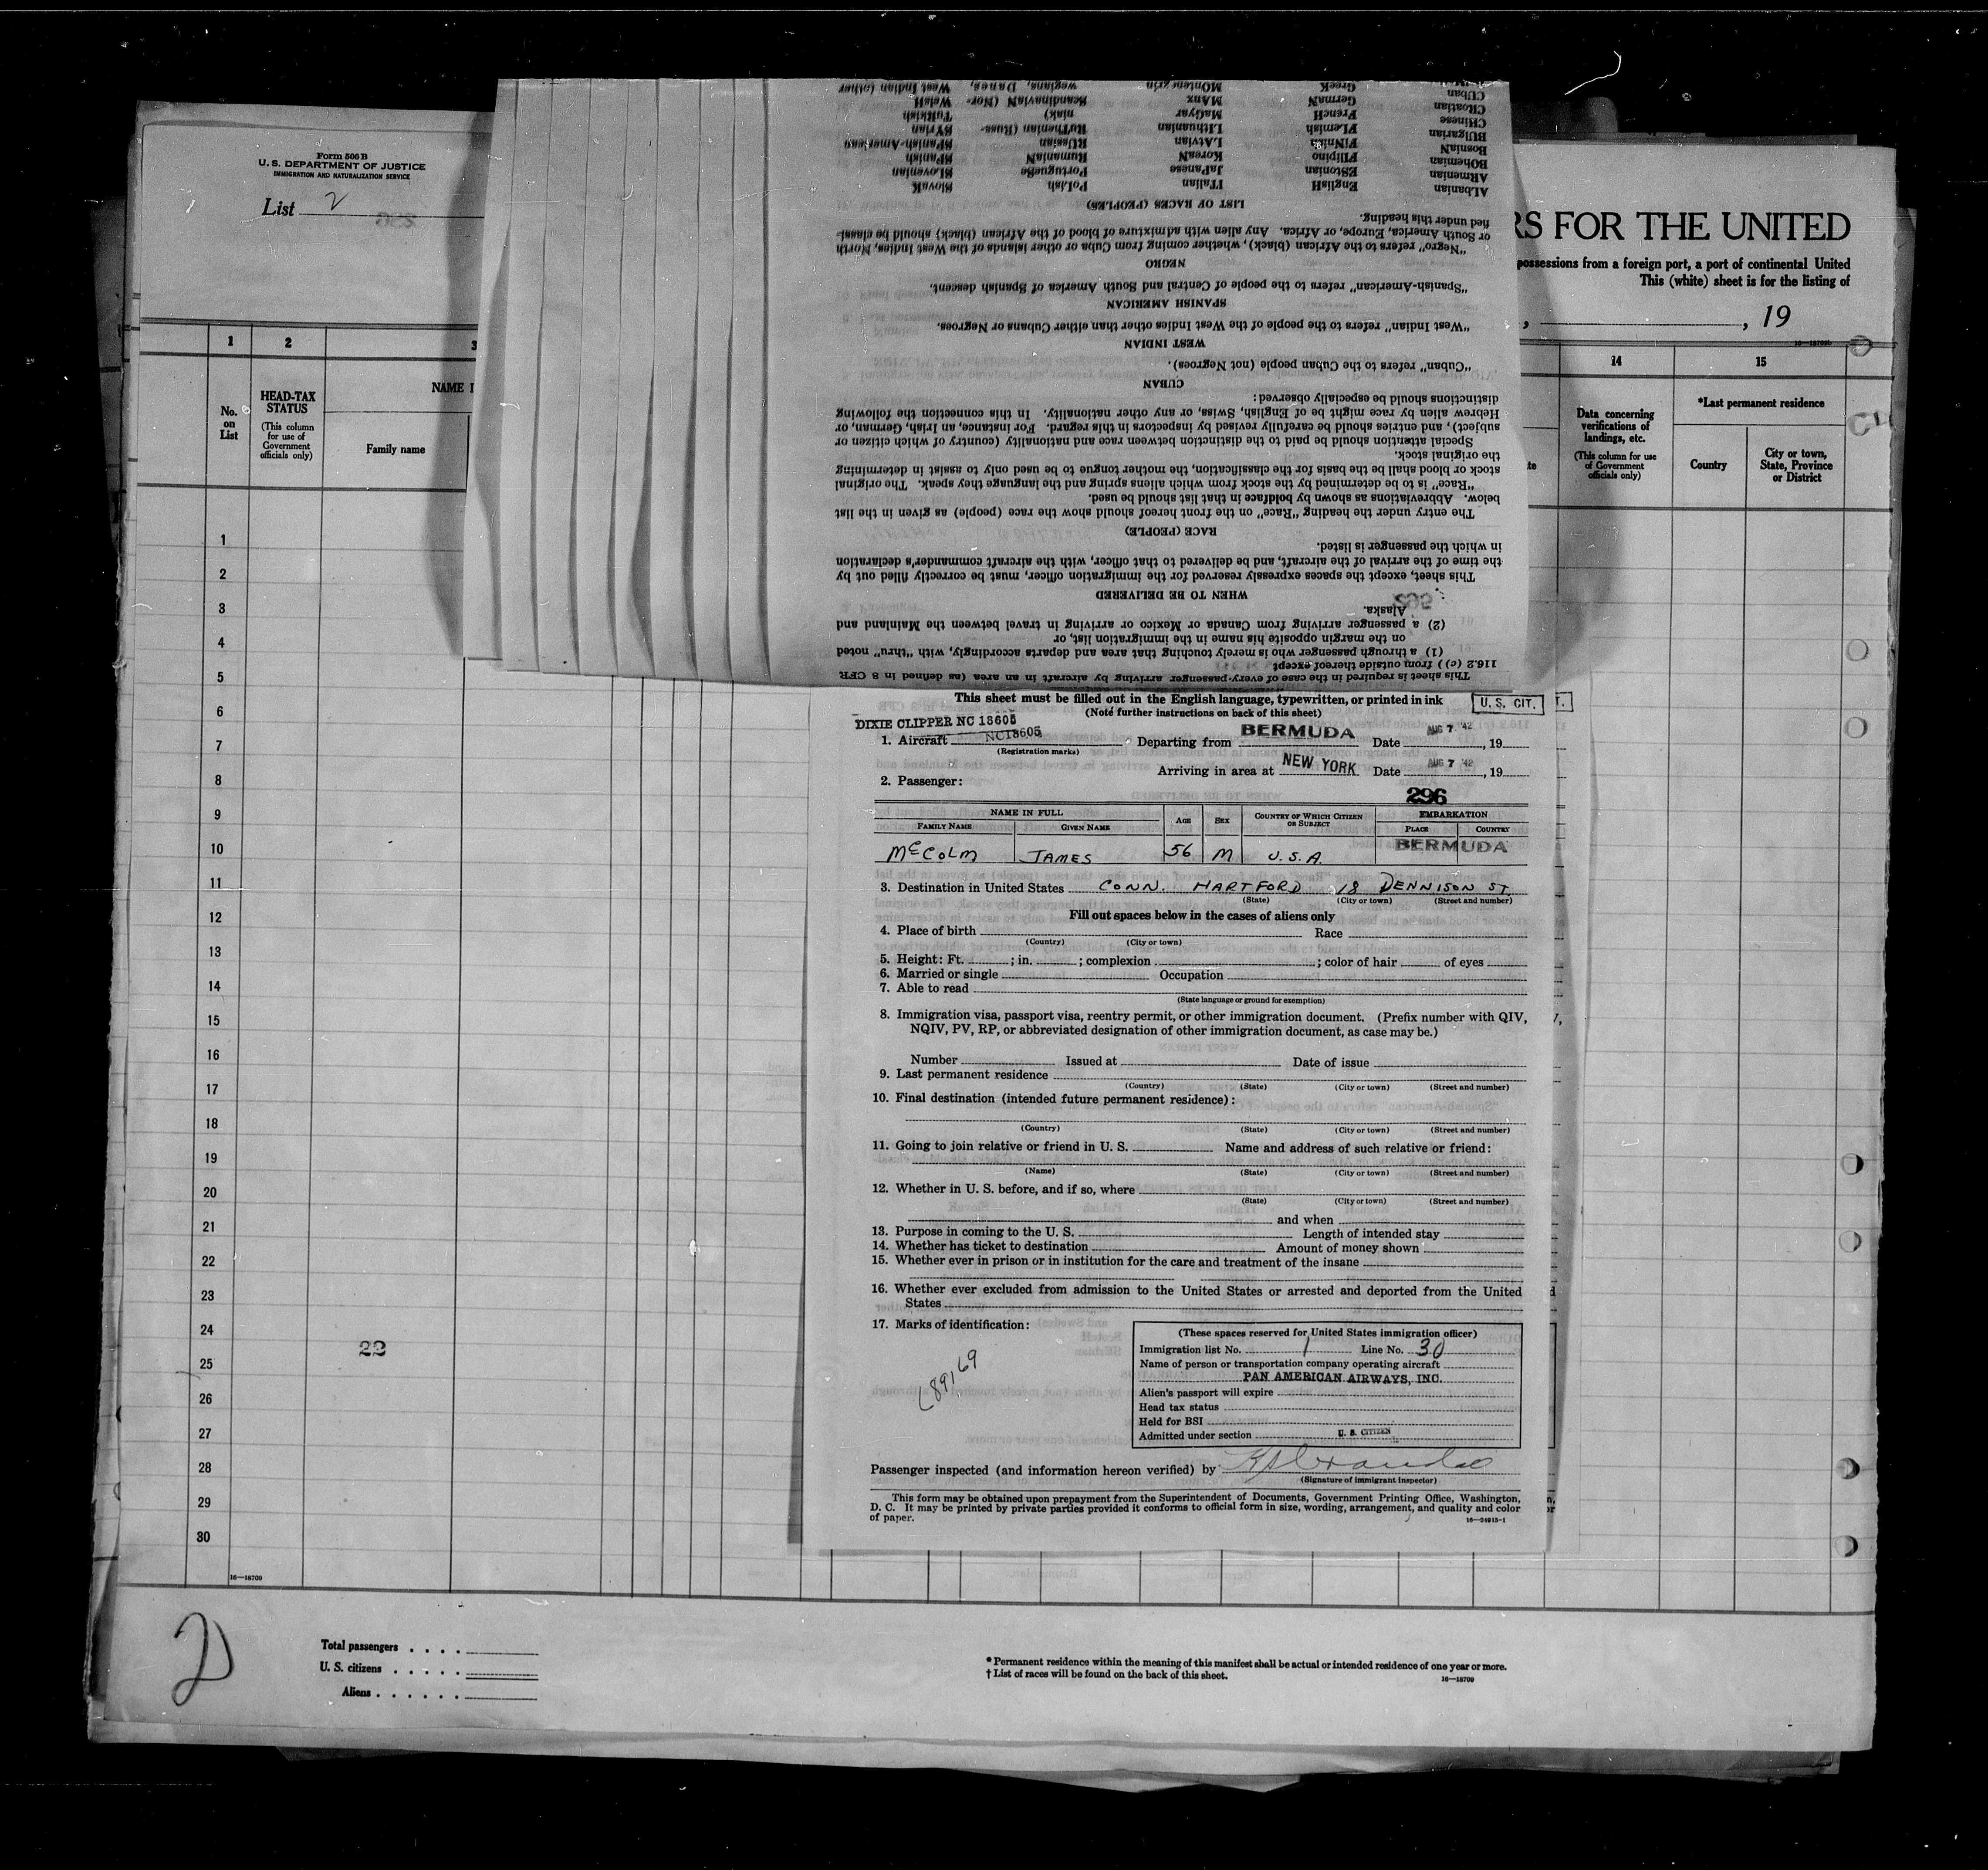 Form 500 B
U. S. DEPARTMENT OF JUSTICE
IMMIGRATION AND NATURALIZATION SERVICE
List 2
RS FOR THE UNITED
possessions from a foreign port, a port of continental United
This (white) sheet is for the listing of
, 19
1 2 3
No. on List
HEAD-TAX STATUS
(This column for use of Government officials only)
NAME I
Family name
14 15
Data concerning verifications of landings, etc.
(This column for use of Government officials only)
*Last permanent residence
Country
City or town, State, Province or District
1
2
3
4
5
6
7
8
9
10
11
12
13
14
15
16
17
18
19
20
21
22
23
24
25
26
27
28
29
30
22
16—18709
This sheet is required in the case of every passenger arriving by aircraft in an area (as defined in 8 CFR
116.2 (c)) from outside thereof except
(1) a through passenger who is merely touching that area and departs accordingly, with "thru" noted
on the margin opposite his name in the immigration list, or
(2) a passenger arriving from Canada or Mexico or arriving in travel between the Mainland and
Alaska.
295
WHEN TO BE DELIVERED
This sheet, except the spaces expressly reserved for the immigration officer, must be correctly filled out by
the time of the arrival of the aircraft, and be delivered to that officer, with the aircraft commander's declaration
in which the passenger is listed.
RACE (PEOPLE)
The entry under the heading "Race" on the front hereof should show the race (people) as given in the list
below. Abbreviations as shown by boldface in that list should be used.
"Race" is to be determined by the stock from which aliens spring and the language they speak. The original
stock or blood shall be the basis for the classification, the mother tongue to be used only to assist in determining
the original stock.
Special attention should be paid to the distinction between race and nationality (country of which citizen or
subject), and entries should be carefully revised by inspectors in this regard. For instance, an Irish, German, or
Hebrew alien by race might be of English, Swiss, or any other nationality. In this connection the following
distinctions should be especially observed:
CUBAN
"Cuban" refers to the Cuban people (not Negroes).
WEST INDIAN
"West Indian" refers to the people of the West Indies other than either Cubans or Negroes.
SPANISH AMERICAN
"Spanish-American" refers to the people of Central and South America of Spanish descent.
NEGRO
"Negro" refers to the African (black), whether coming from Cuba or other islands of the West Indies, North
or South America, Europe, or Africa. Any alien with admixture of blood of the African (black) should be classi-
fied under this heading.
LIST OF RACES (PEOPLES)
ALbanian EnglisH ITalian PoLish SlovaK
ARmenian EStonian JaPanese PortuguеSe SLovenian
BOhemian FIlipino KoreaN RumaniaN SPanish
BosniaN FiNnish LAtvian RUssian SPanish-American
BUlgarian FLemish LIthuanian RuThenian (Russ- SYrian
CHinese FrencH MaGyar niak) TurKish
CRoatian GermaN MAnx ScandinaviaN (Nor- WelsH
CUban GreeK MOntenegrin wegians, Danes, West Indian (other
This sheet must be filled out in the English language, typewritten, or printed in ink
U. S. CIT.
(Note further instructions on back of this sheet)
DIXIE CLIPPER NC 18605
1. Aircraft NC18605 Departing from BERMUDA Date AUG 7 '42, 19
(Registration marks)
Arriving in area at NEW YORK Date AUG 7 '42, 19
2. Passenger:
296
NAME IN FULL
FAMILY NAME GIVEN NAME AGE SEX COUNTRY OF WHICH CITIZEN OR SUBJECT EMBARKATION PLACE COUNTRY
McCOLM JAMES 56 M U.S.A. BERMUDA
3. Destination in United States CONN. HARTFORD 18 DENNISON ST.
(State) (City or town) (Street and number)
Fill out spaces below in the cases of aliens only
4. Place of birth Race
(Country) (City or town)
5. Height: Ft. ; in. ; complexion ; color of hair of eyes
6. Married or single Occupation
7. Able to read
(State language or ground for exemption)
8. Immigration visa, passport visa, reentry permit, or other immigration document. (Prefix number with QIV,
NQIV, PV, RP, or abbreviated designation of other immigration document, as case may be.)
Number Issued at Date of issue
9. Last permanent residence
(Country) (State) (City or town) (Street and number)
10. Final destination (intended future permanent residence):
(Country) (State) (City or town) (Street and number)
11. Going to join relative or friend in U. S. Name and address of such relative or friend:
(Name) (State) (City or town) (Street and number)
12. Whether in U. S. before, and if so, where
(State) (City or town) (Street and number)
and when
13. Purpose in coming to the U. S. Length of intended stay
14. Whether has ticket to destination Amount of money shown
15. Whether ever in prison or in institution for the care and treatment of the insane
16. Whether ever excluded from admission to the United States or arrested and deported from the United
States
17. Marks of identification:
(These spaces reserved for United States immigration officer)
Immigration list No. 1 Line No. 30
Name of person or transportation company operating aircraft
PAN AMERICAN AIRWAYS, INC.
Alien's passport will expire
Head tax status
Held for BSI
Admitted under section U. S. CITIZEN
Passenger inspected (and information hereon verified) by
(Signature of immigrant inspector)
This form may be obtained upon prepayment from the Superintendent of Documents, Government Printing Office, Washington,
D. C. It may be printed by private parties provided it conforms to official form in size, wording, arrangement, and quality and color
of paper.
16—24915-1
2
Total passengers
U. S. citizens
Aliens
* Permanent residence within the meaning of this manifest shall be actual or intended residence of one year or more.
† List of races will be found on the back of this sheet.
16—18709